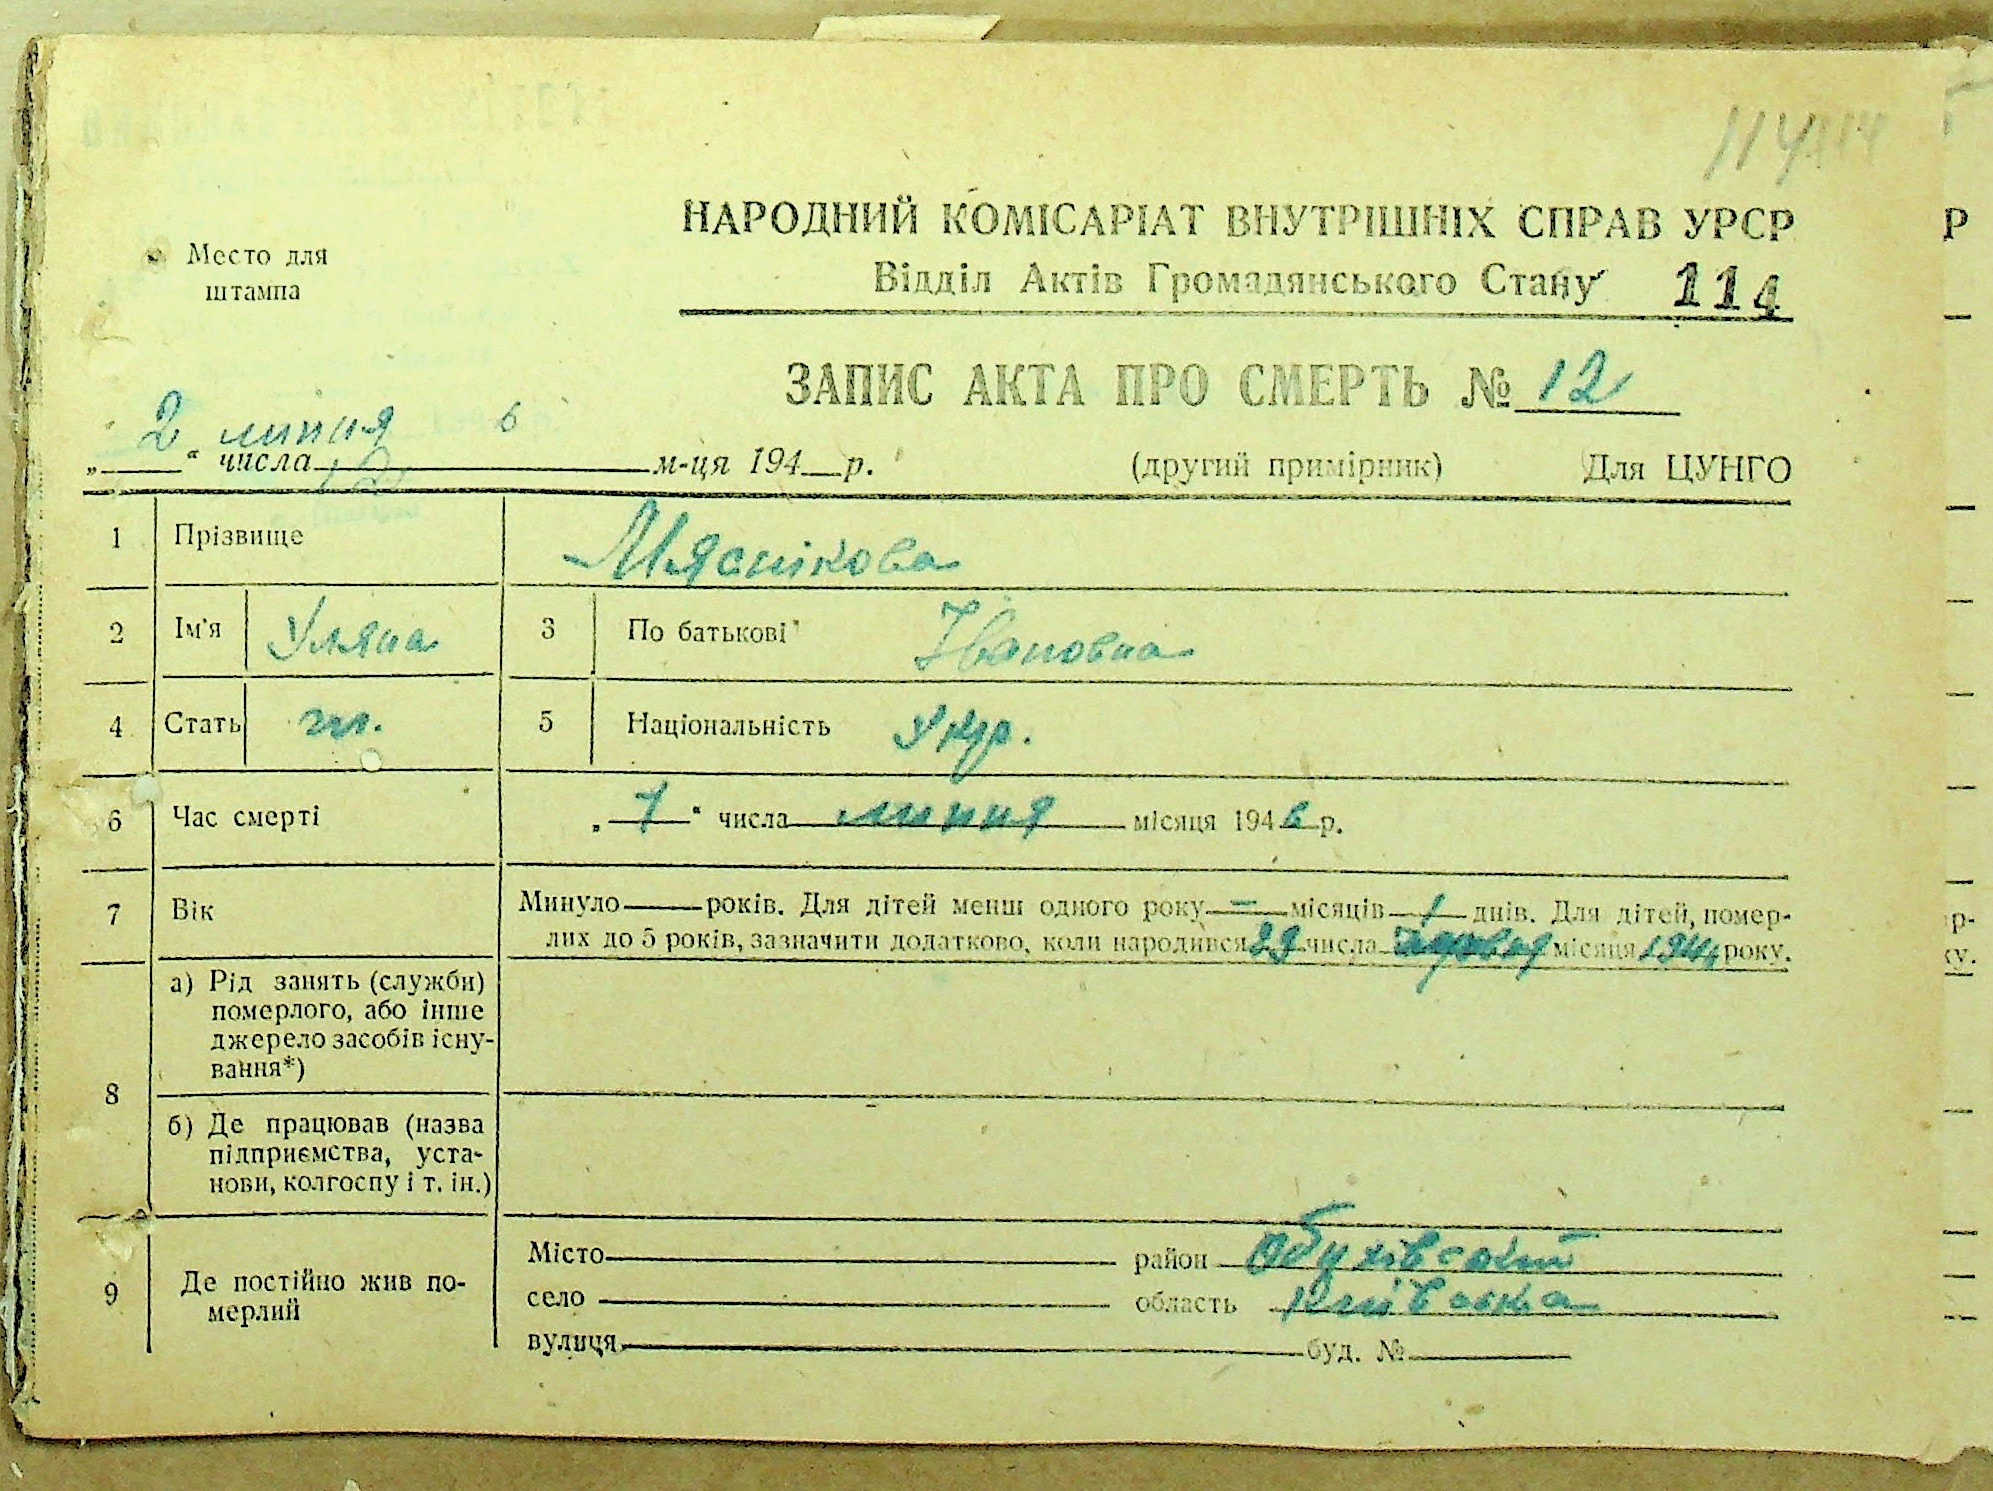 114 114
Место для
штампа
НАРОДНИЙ КОМІСАРІАТ ВНУТРІШНІХ СПРАВ УРСР
Відділ Актів Громадянського Стану 114
ЗАПИС АКТА ПРО СМЕРТЬ № 12
„ 2 “ числа липня м-ця 194 6 р. (другий примірник) Для ЦУНГО
1 Прізвище Мяснікова
2 Ім'я Уляна 3 По батькові Івановна
4 Стать жі. 5 Національність Укр.
6 Час смерті „ 1 “ числа липня місяця 194 6 р.
7 Вік Минуло — років. Для дітей менш одного року — місяців 1 днів. Для дітей, помер-
лих до 5 років, зазначити додатково, коли народився 29 числа червня місяця 194 року.
8 а) Рід занять (служби)
померлого, або інше
джерело засобів існу-
вання*)
б) Де працював (назва
підприємства, уста-
нови, колгоспу і т. ін.)
9 Де постійно жив по-
мерлий
Місто район Обухівський
село область Київська
вулиця буд. №
Р
р-
ку.